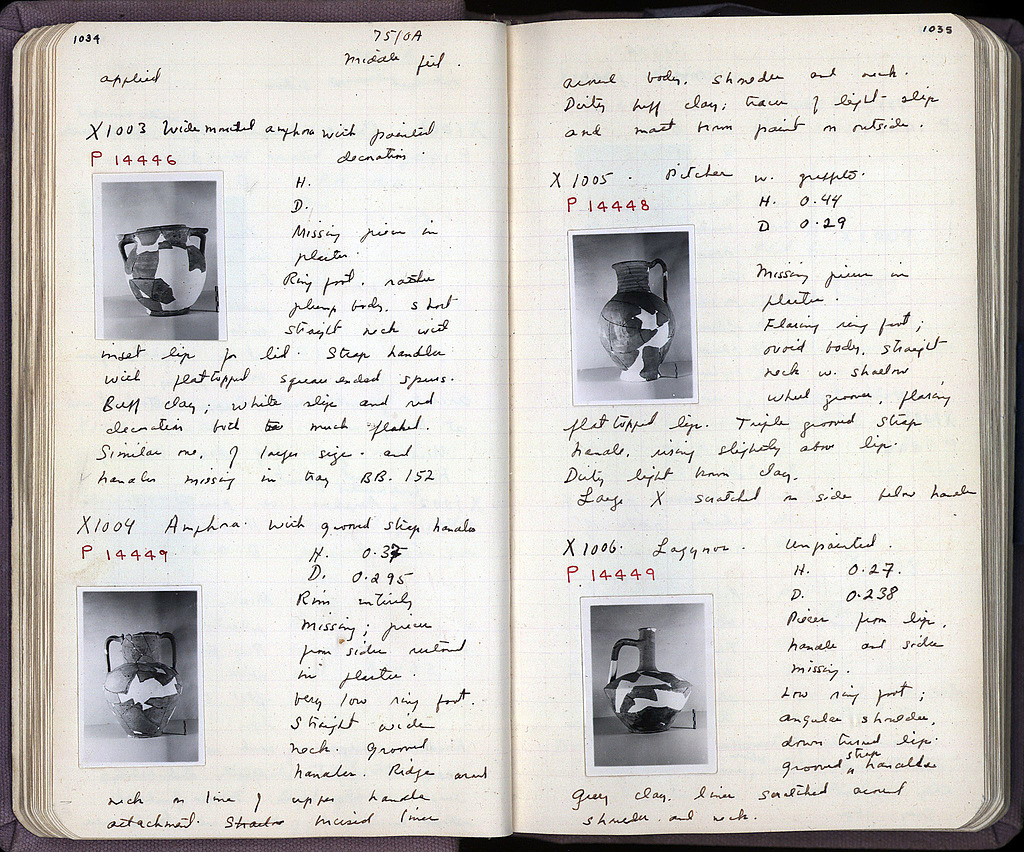 1034
75/ΟΔ
Middle fill.
applied
X1003 Wide mouthed amphora with painted
decoration.
P 14446
H.
D.
Missing pieces in
plaster.
Ring foot, rather
plump body, short
straight neck with
inset lip for lid. Strap handles
with flat topped square ended spurs.
Buff clay; white slip and red
decoration both much flaked.
Similar one, of larger size and
handles missing in tray BB. 152
X1004 Amphora. with grooved strap handles
P 14449
H. 0.37
D. 0.295
Rim entirely
missing; pieces
from sides restored
in plaster.
Very low ring foot.
Straight wide
neck. Grooved
handles. Ridge around
neck on line of upper handle
attachment. Incised lines
1035
around body, shoulder and neck.
Dirty buff clay; traces of light slip
and matt brown paint on outside.
X 1005. Pitcher w. graffito.
P 14448
H. 0.44
D 0.29
Missing pieces in
plaster.
Flaring ring foot;
ovoid body, straight
neck w. shallow
wheel grooves, flaring
flat topped lip. Triple grooved strap
handle, rising slightly above lip.
Dirty light brown clay.
Large X scratched on side below handle
X 1006. Lagynos. Unpainted.
P 14449
H. 0.27.
D. 0.238
Pieces from lip,
handle and sides
missing.
Low ring foot;
angular shoulder,
down turned lip.
grooved strap handle
Grey clay. lines scratched around
shoulder and neck.